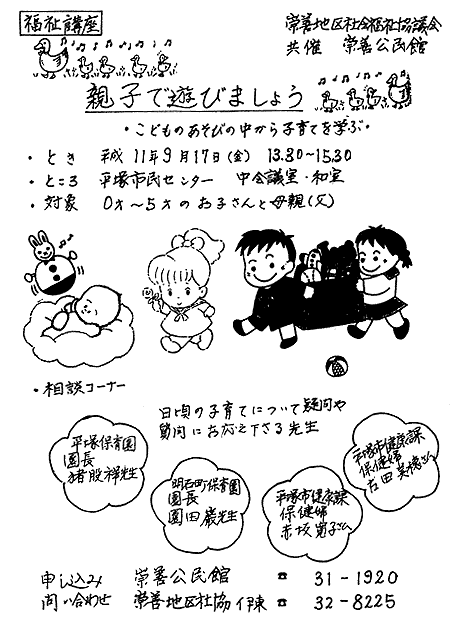 福祉講座
崇善地区社会福祉協議会
共催 崇善公民館
親子で遊びましょう
・こどものあそびの中から子育てを学ぶ・
・とき 平成11年9月17日(金) 13.30~15.30
・ところ 平塚市民センター 中会議室・和室
・対象 0才~5才のお子さんと母親(父)
・相談コーナー
日頃の子育てについて疑問や
質問にお応え下さる先生
平塚保育園
園長
猪股祥先生
明石町保育園
園長
園田巌先生
平塚市健康課
保健婦
赤坂 さん
平塚市健康課
保健婦
古田美穂さん
申し込み 崇善公民館 ☎ 31-1920
問い合わせ 崇善地区社協 伊東 ☎ 32-8225